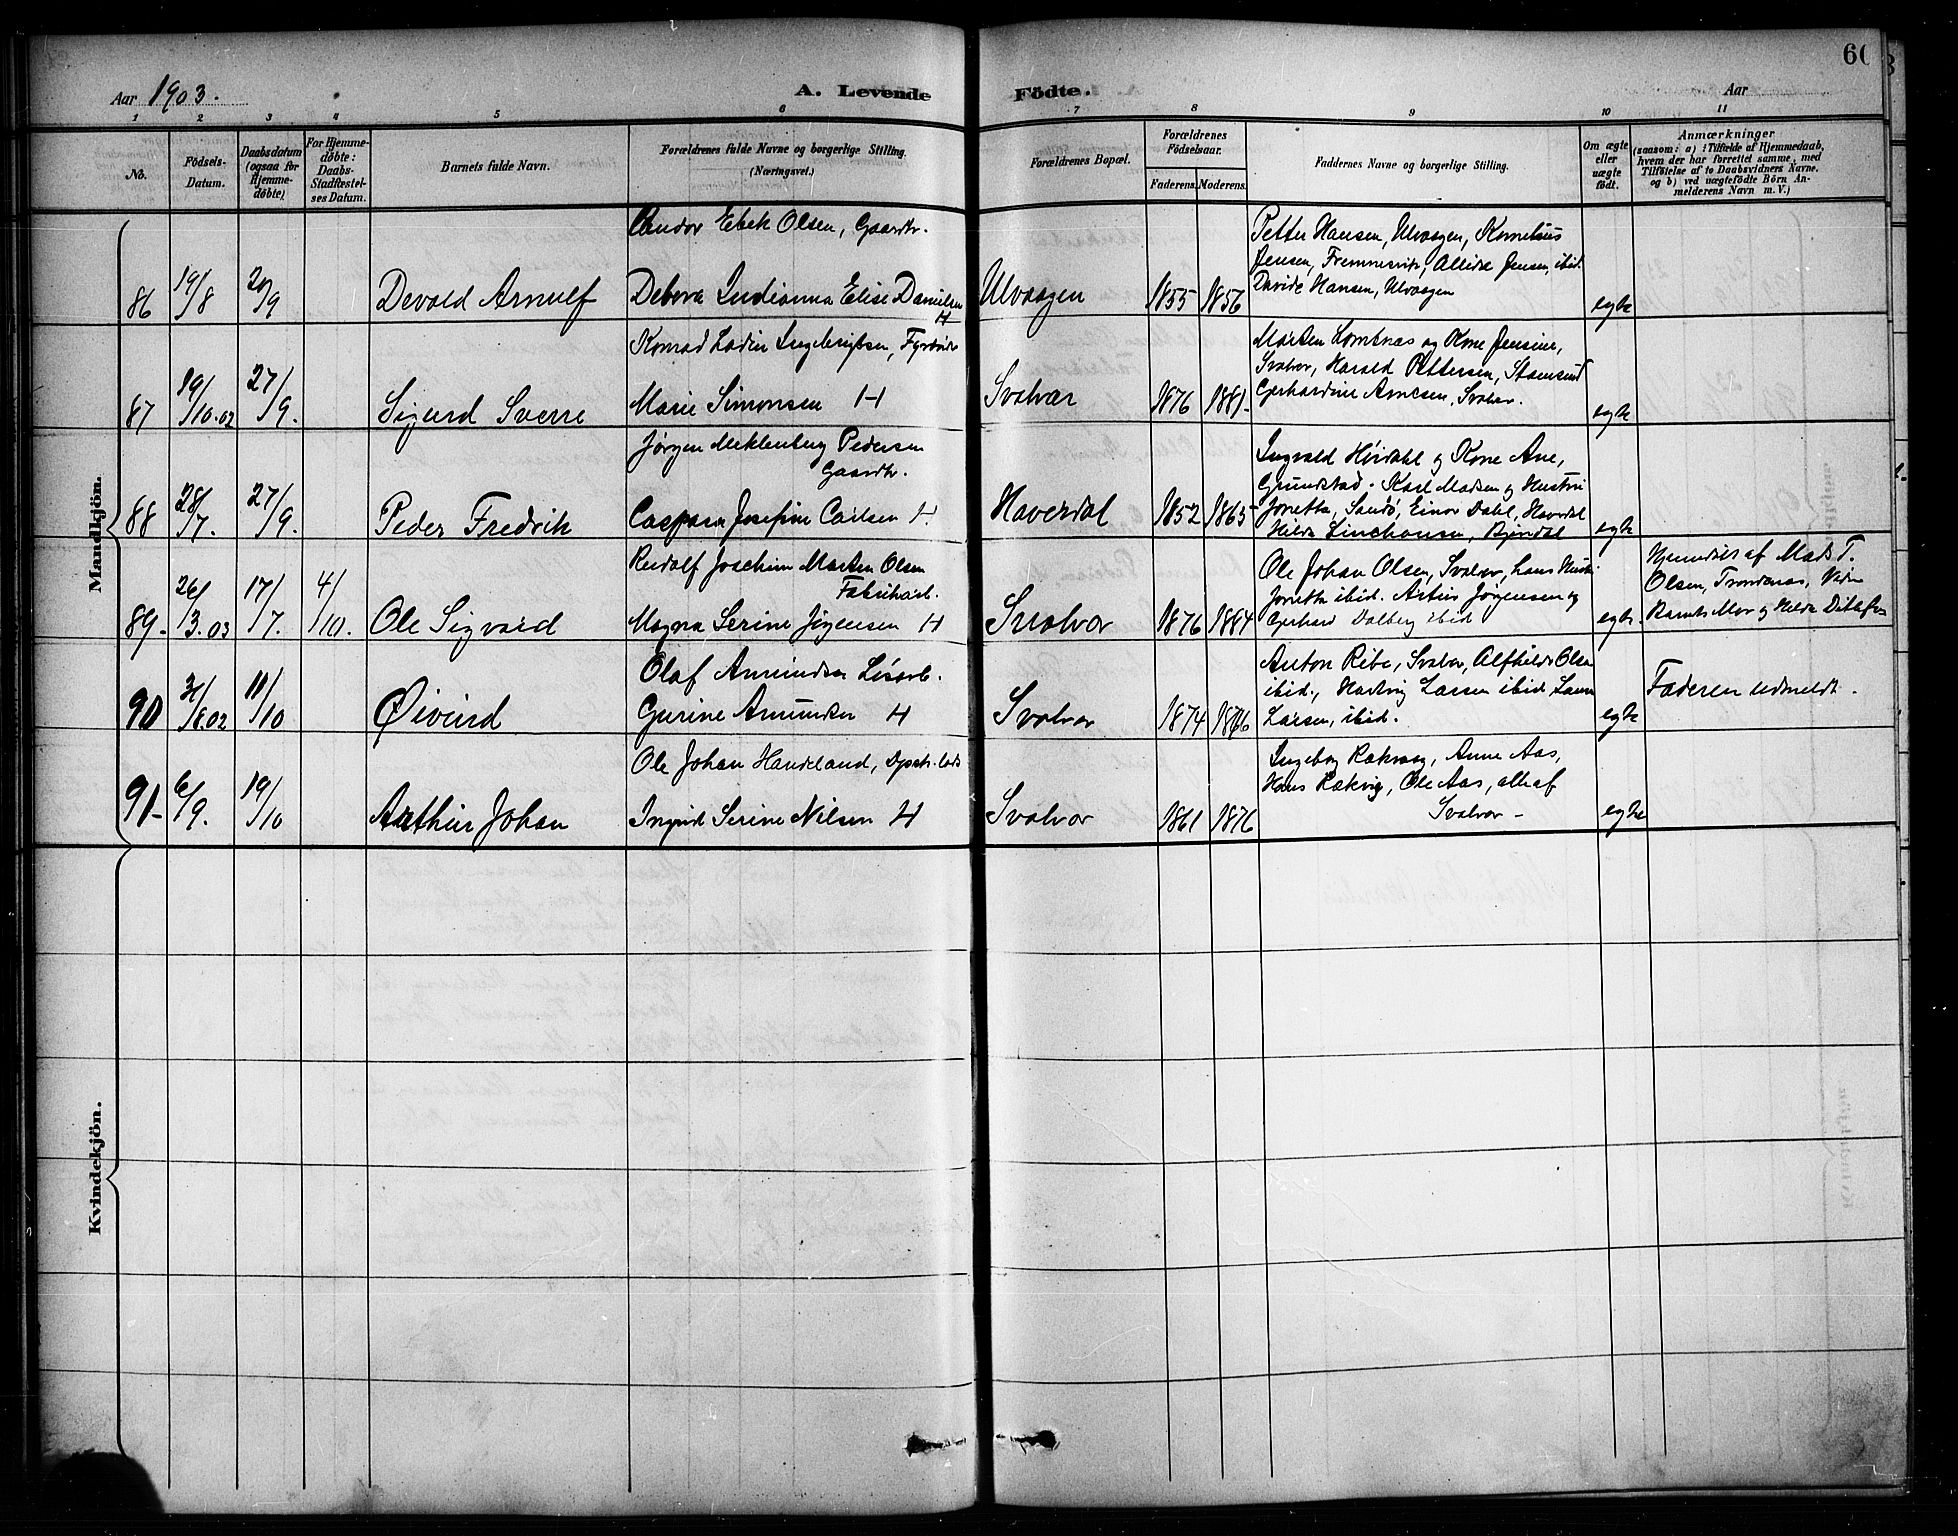 60
Aar 1903.
A. Levende Födte.
Aar
1 2 3 4 5 6 7 8 9 10 11
No.
Födsels-Datum.
Daabsdatum (ogsaa for Hjemmedöbte)
For Hjemmedøbte: Daabs-Stadfæstelses Datum.
Barnets fulde Navn.
Forældrenes fulde Navne og borgerlige Stilling. (Næringsvei.)
Forældrenes Bopæl.
Forældrenes Fødselsaar.
Faderens. Moderens.
Faddernes Navne og borgerlige Stilling.
Om ægte eller uægte födt.
Anmærkninger
(saasom: a) i Tilfælde af Hjemmedaab,
hvem der har forrettet samme, med
Tilföielse af to Daabsvidners Navne.
og b) ved uægtefödte Börn Anmelderens Navn m. V.)
Mandkjön.
86 19/8 20/9 Devold Arnulf
Ebek Olsen, Gaardbr.
Debora Indianna Elise Danielsen H
Ulvaagen 1855 1856
Petter Hansen, Ulvaagen, Kornelius
Jensen, Jensen, ibid.
Davide Hansen, Ulvaagen
egte
87 19/10.02 27/9. Sigurd Sverre
Konrad Ladin Ingebrigtsen,
Marie Simonsen H
Svolvær 1876 1881
Morten Lorntnæs og Kone Jensine,
Svolvær, Harald Pettersen, Stamsund
Gerhardine Arnesen, Svolvær.
egte
88 28/7. 27/9. Peder Fredrik
Jørgen Meklenburg Pedersen
Gaardbr.
Caspara Josefine Carlsen H.
Haverdal 1852 1865
Ingvald Høidahl og Kone Ane,
Grundstad. Karl Madsen og Hustru
Jonetta, Sandø, Einar Dahl, Haverdal
Hilda
egte
89. 26/3.03 17/7. 4/10. Ole Sigvard
Rudolf Joachim Morten Olsen
Fabrikarb.
Magna Serine Jørgensen H
Svolvær 1876 1884
Ole Johan Olsen, Svolvær, hans Hustru
Jonetta ibid. Jørgensen og
Gerhard Dalberg ibid
egte.
Hjemdøbt af Mads T.
Olsen, Trondenæs,
Barnets Mor og Hilda
90 31/8.02 11/10 Øivind
Olaf Amundsen Løsarb.
Gurine Amundsen H
Svolvær 1874 1876
Anton Ribe, Svolvær, Alfhilde Olsen
ibid., Hartvig Larsen ibid. Laura
Larsen, ibid.
egte
Faderen udmeldt.
91- 6/9. 19/10 Arthur Johan
Ole Johan Handeland,
Ingrid Serine Nilsen H
Svolvær 1861 1876
Ingeborg Rækvaag, Anne Aas,
Hans Rækvig, Ole Aas, alle af
Svolvær -
egte
Kvindekjön.